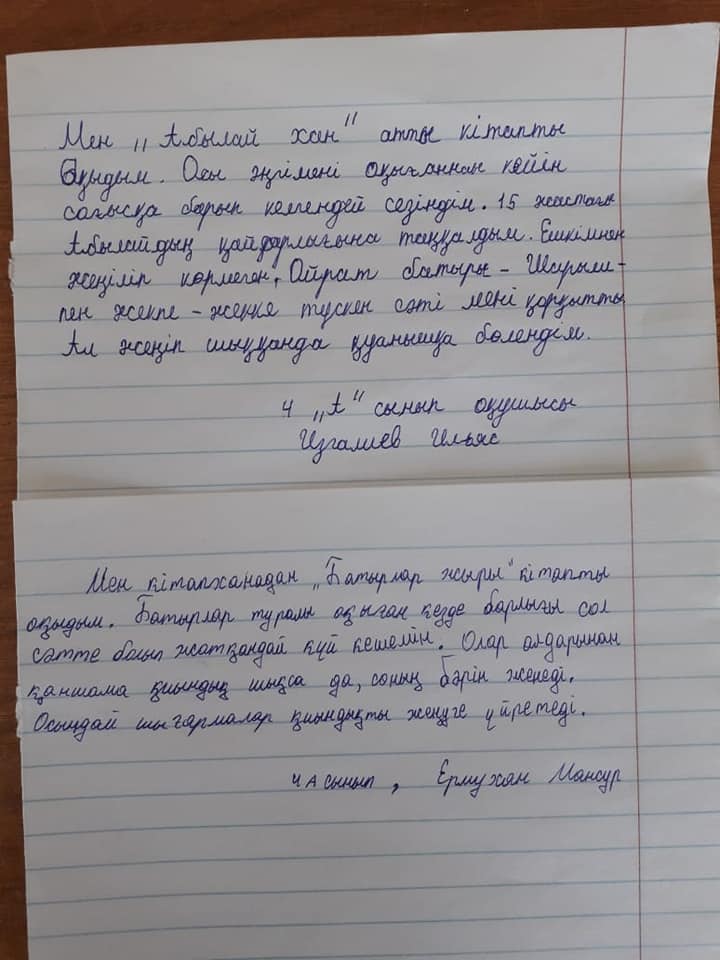 Мен „Абылай хан" атты кітапты
оқыдым. Осы әңгімені оқығаннан кейін
сағысқа барып келгендей сезіндім. 15 жастағы
Абылайдың қайсарлығына таңқалдым. Ешкімнен
жеңіліп көрмеген, Ойрат батыры - Шарыш-
пен жекпе - жекке түскен сәті мені қорқытты
Ал жеңіп шыққанда қуанышқа бөлендім.
4 „А" сынып оқушысы
Изгалиев Ильяс
Мен кітапханадан „Батырлар жыры" кітапты
оқыдым. Батырлар туралы оқыған кезде барлығы сол
сәтте болып жатқандай күй кешемін. Олар алдарынан
қаншама қиындық шықса да, соның бәрін жеңеді.
Осындай шығармалар қиындықты жеңуге үйретеді.
4 А сынып, Ермухан Мансур